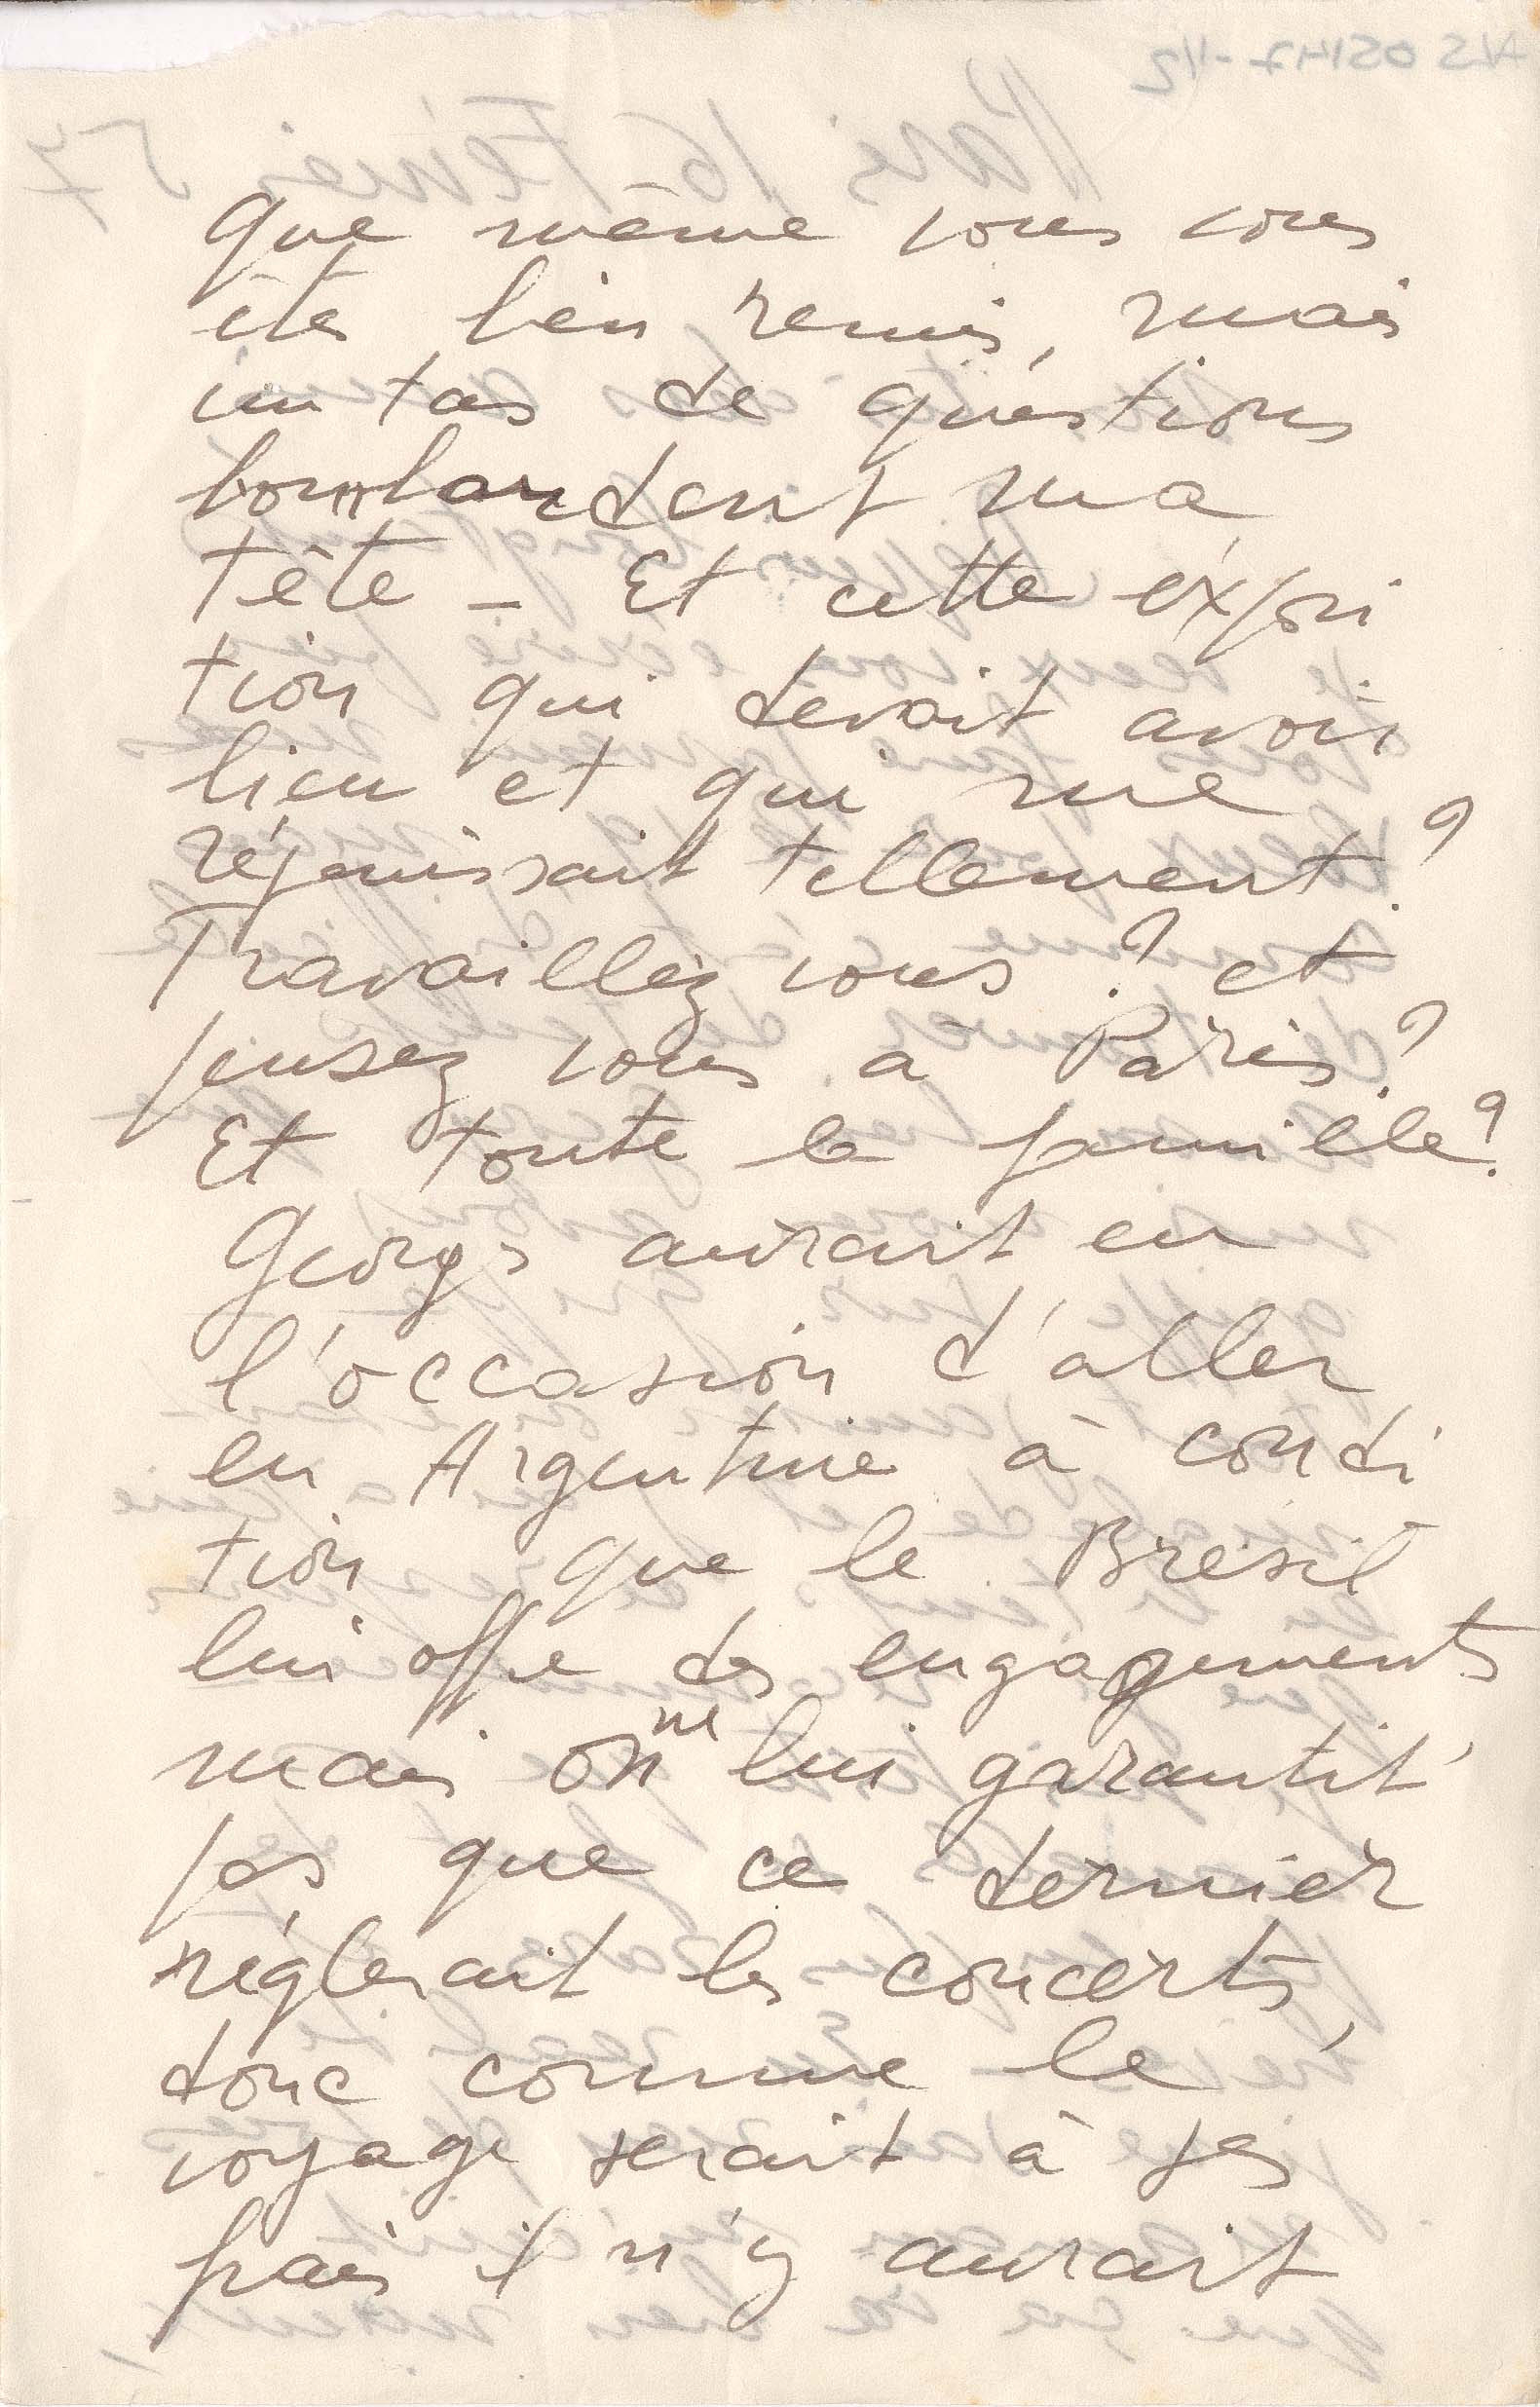 que même vous vous
êtes bien remis, mais
un tas de questions
bombardent ma
tête - Et cette exposi
tion qui devait avoir
lieu et qui me
réjouissait tellement?
Travaillez vous? et
pensez vous à Paris?
Et toute la famille?
Georgs aurait eu
l'occasion d'aller
en Argentine à condi
tion que le Brésil
lui offre des engagements
mais on ne lui garantit
pas que ce dernier
réglerait les concerts,
donc comme le
voyage serait à ses
frais il n'y aurait